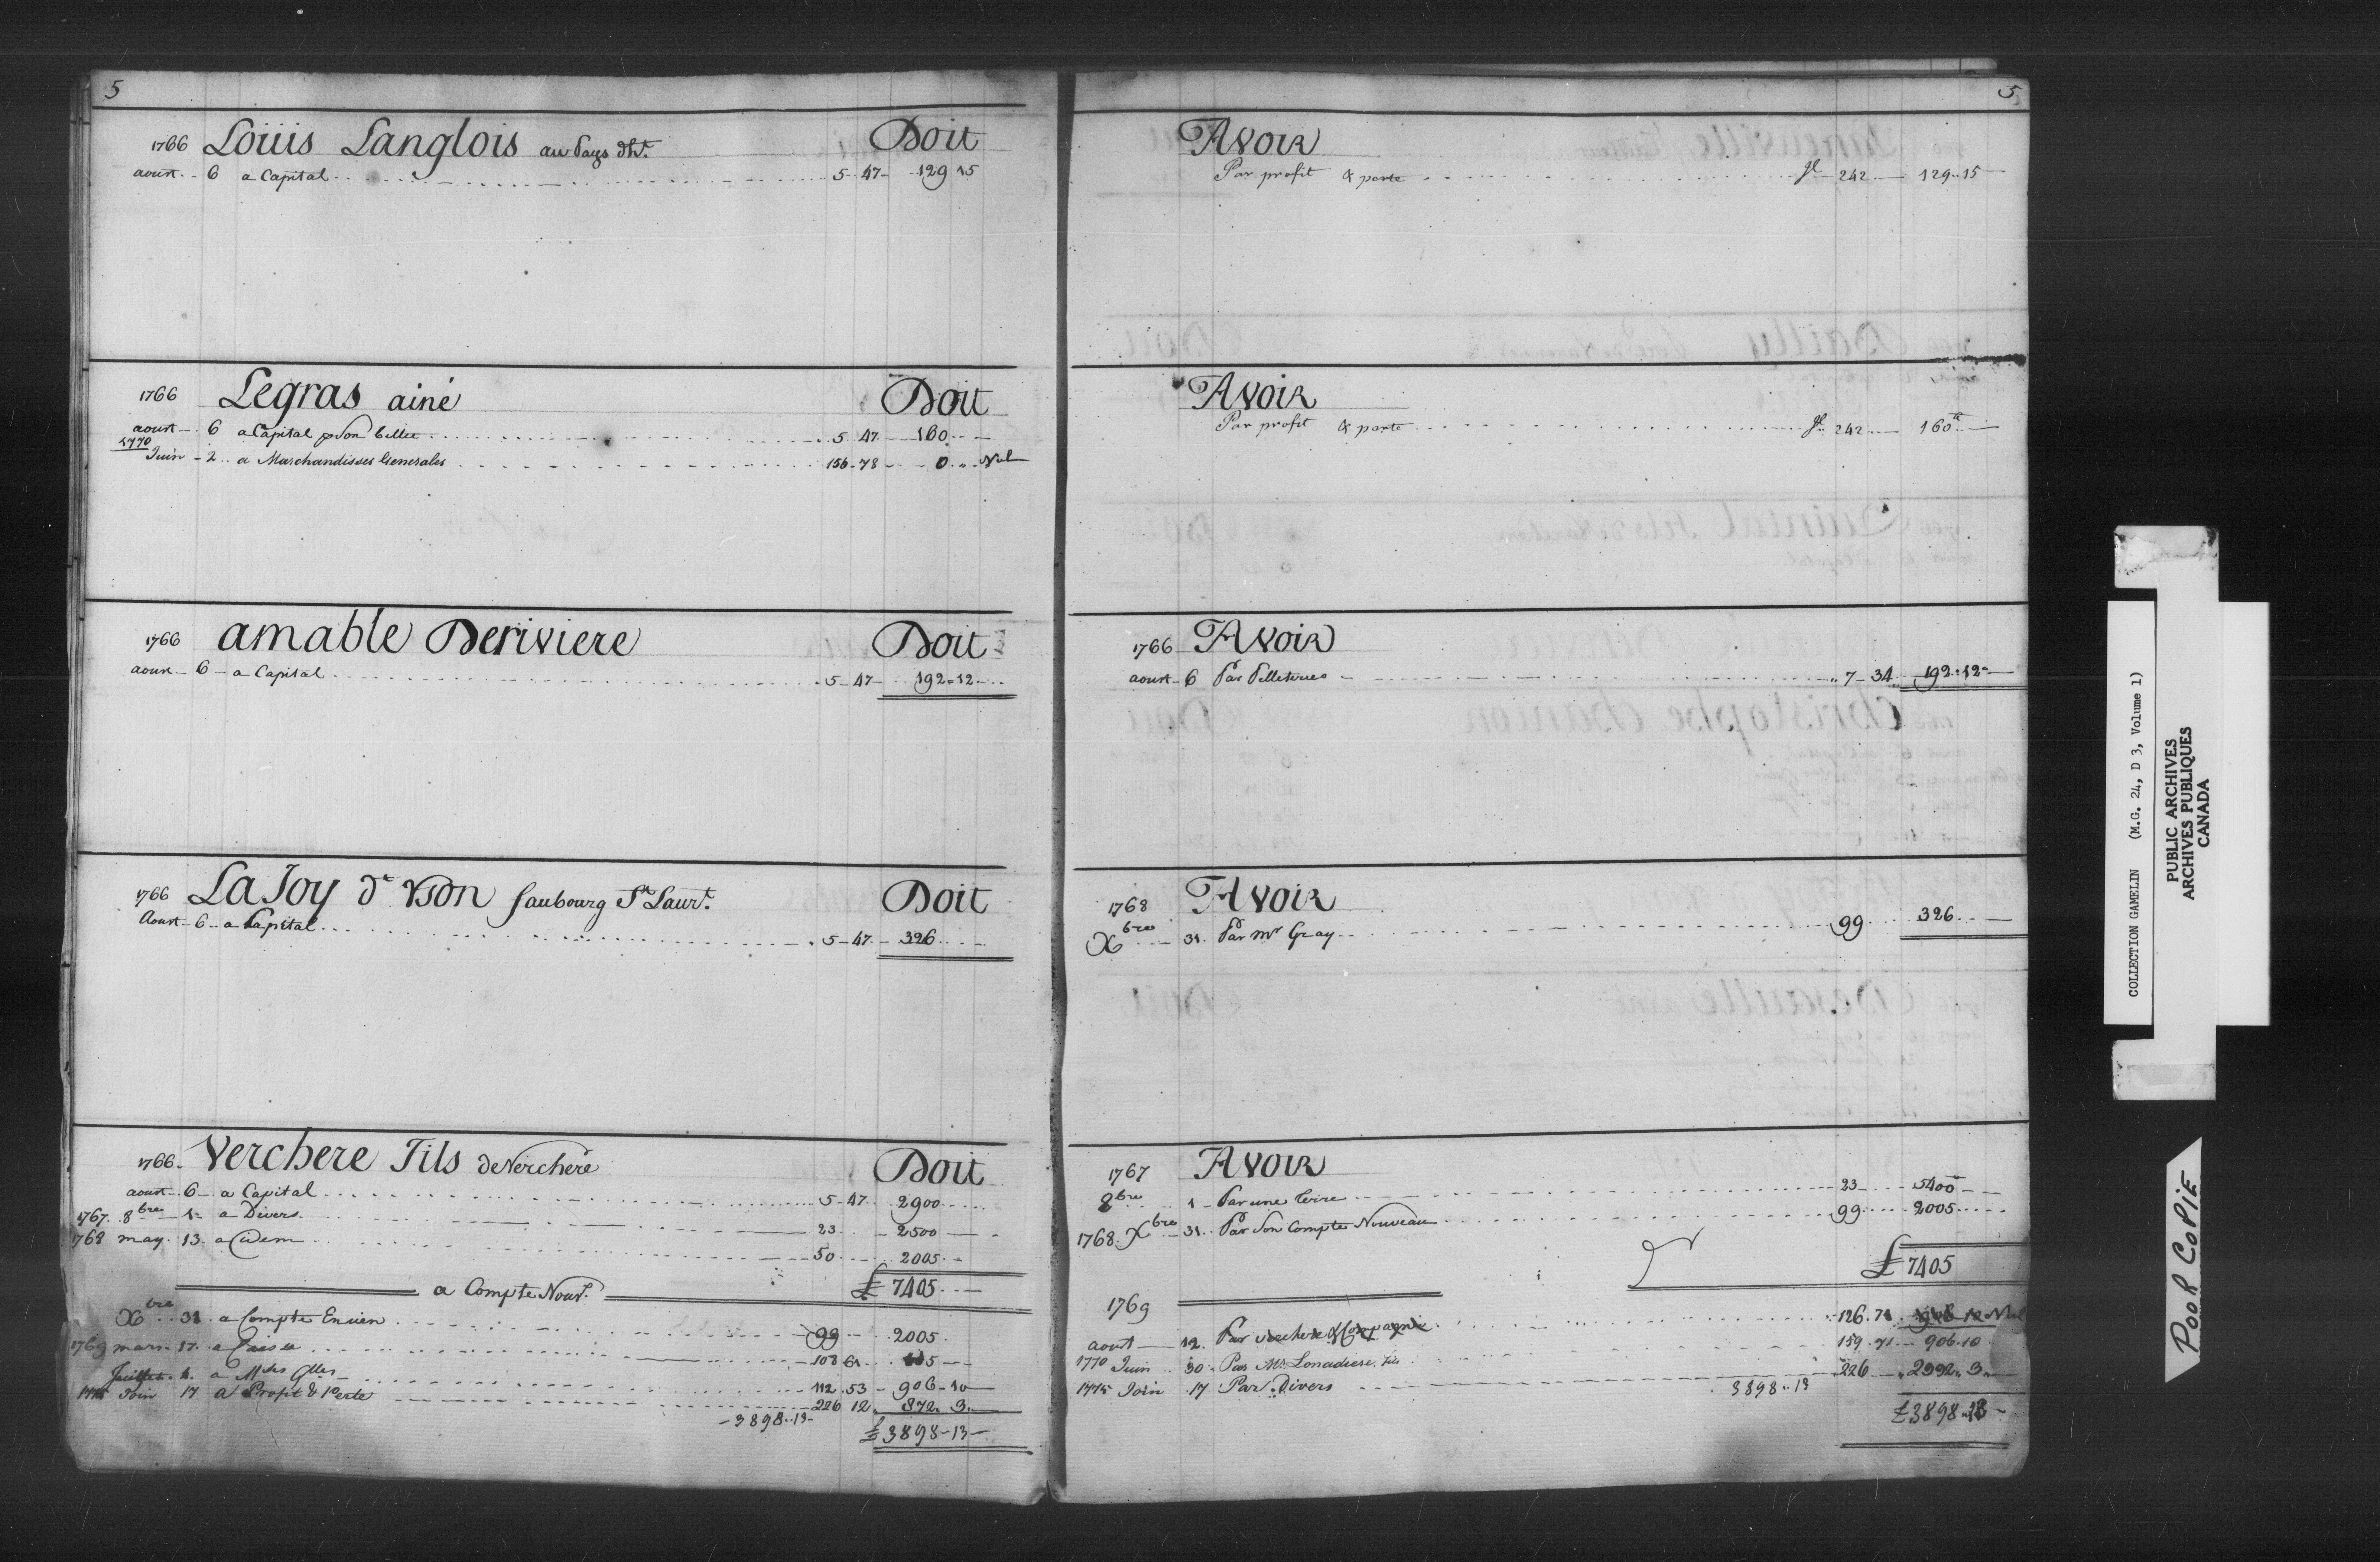 5
1766 Loüis Langlois au Pays dht. Doit
aoust 6 a Capital 5 47 129 15
1766 Legras ainé Doit
aoust 6 a Capital p Son billet 5 47 160
1770
Juin 2 a Marchandisses Generales 156 78 0 " Nul
1766 amable Deriviere Doit
aoust 6 a Capital 5 47 192 12
1766 LaJoy dt faubourg St Laurt. Doit
Aoust 6 a Capital 5 47 326
1766 Verchere Fils de Verchere Doit
aoust 6 a Capital 5 47 2900
1767 8bre 1 a Divers 23 2500
1768 may 13 a idem 50 2005
£ 7405
a Compte Nouv.
Xbre 31 a Compte Encien 99 2005
1769 mars 17 a Caisse 108 61 115
Juillet 1 a Mdes Glles 112 53 906 10
1775 Join 17 a Profit & Perte 226 12 872 3
3898 13
£ 3898 13
5
Avoir
Par profit & perte fl 242 129 15
Avoir
Par profit & perte fl 242 160
1766 Avoir
aoust 6 Par Pelleteries 7 34 192 12
1768 Avoir
Xbre 31 Par Mr Gray 99 326
1767 Avoir
8bre 1 Par une terre 23 5400
1768 Xbre 31 Par Son Compte Nouveau 99 2005
£ 7405
1769
aout 12 Par verchere & Compagnie 126 71 906 10 Nul
1770 Juin 30 Par Mr Lanaudiere fils 159 71 906 10
1775 Join 17 Par Divers 226 2992 3
3898 13
£ 3898 13
COLLECTION GAMELIN (M.G. 24, D 3, Volume 1)
PUBLIC ARCHIVES
ARCHIVES PUBLIQUES
CANADA
POOR COPIE